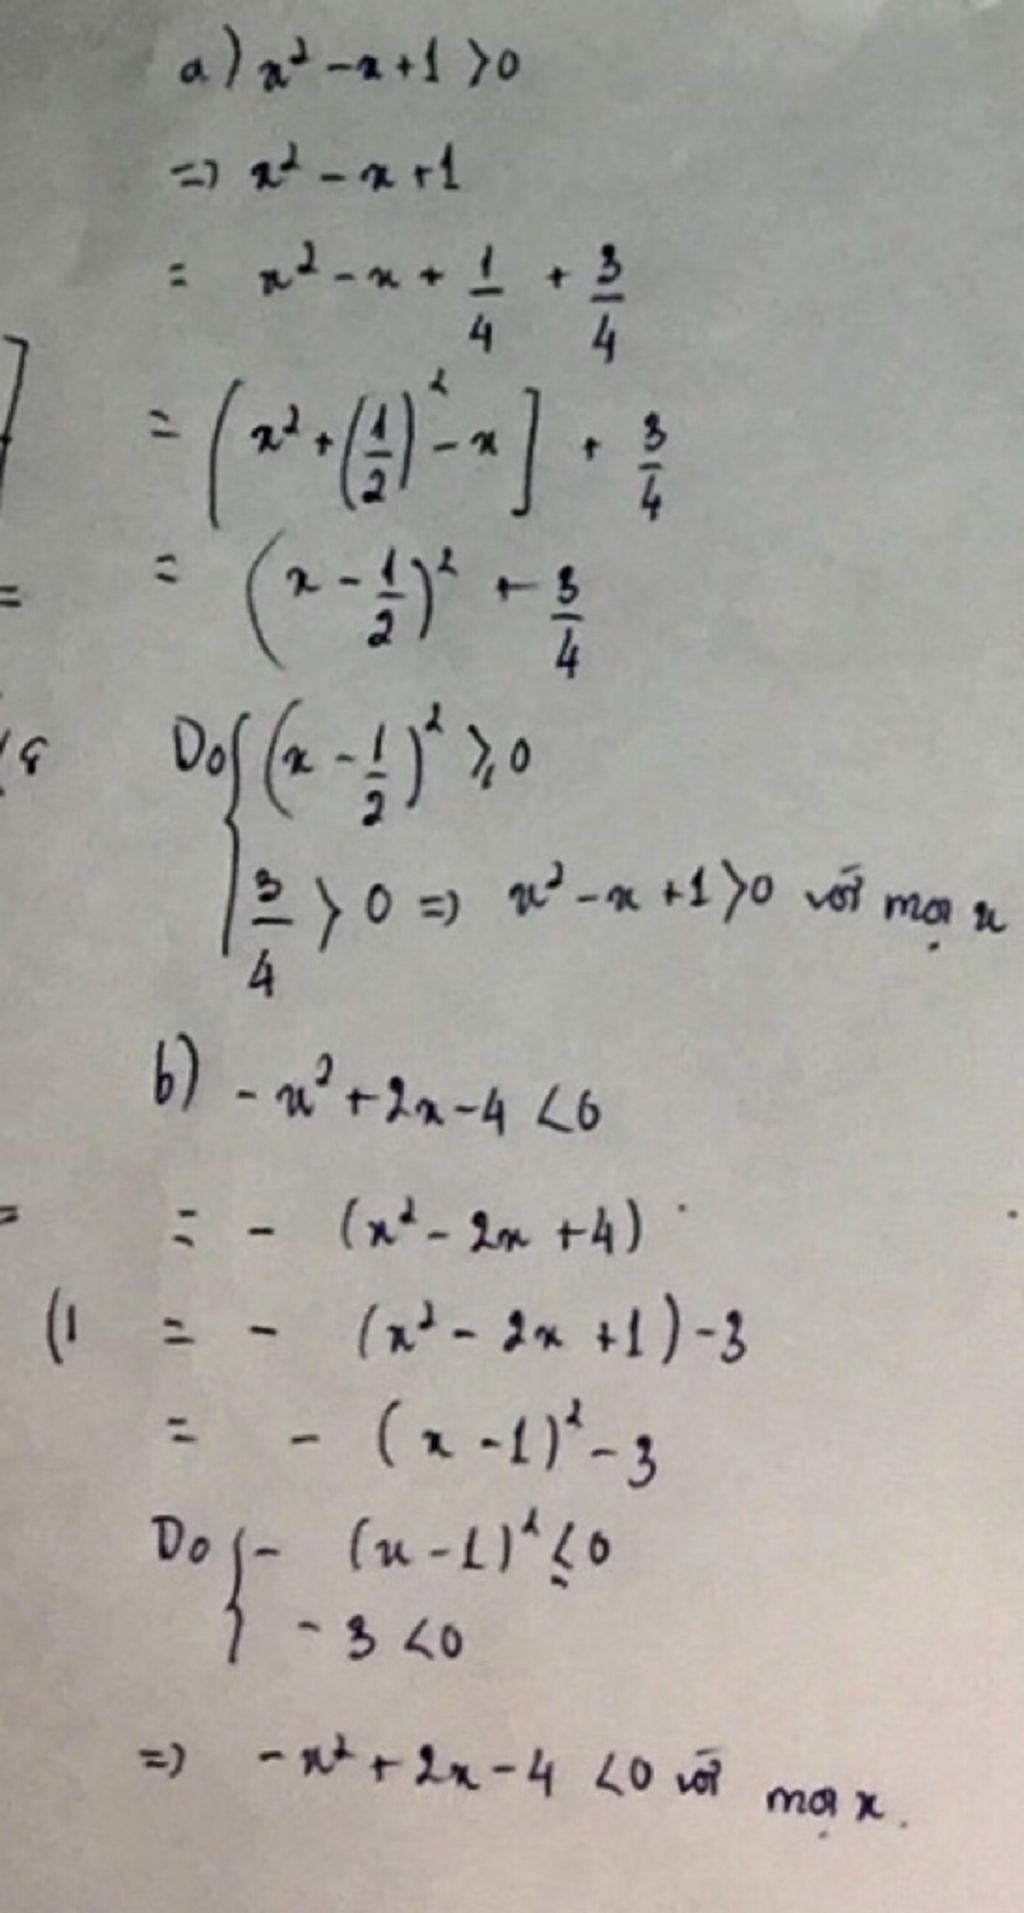 a) x² - x + 1 > 0
=> x² - x + 1
= x² - x + 1/4 + 3/4
= [x² + (1/2)² - x] + 3/4
= (x - 1/2)² + 3/4
Do { (x - 1/2)² ⩾ 0
3/4 > 0 => x² - x + 1 > 0 với mọi x
b) - x² + 2x - 4 < 0
= - (x² - 2x + 4)
= - (x² - 2x + 1) - 3
= - (x - 1)² - 3
Do { - (x - 1)² ≤ 0
- 3 < 0
=> - x² + 2x - 4 < 0 với mọi x.